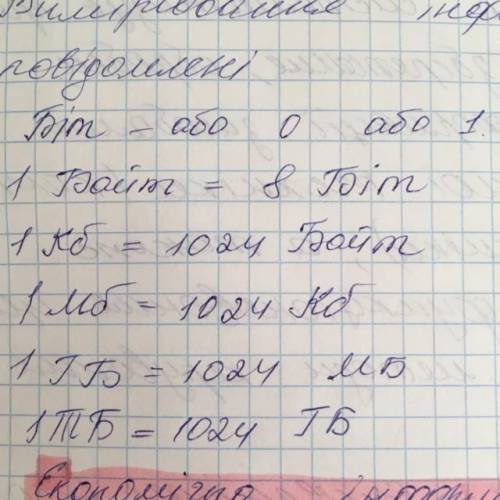 Вимірювання інф
повідомлені
Біт – або 0 або 1.
1 Байт = 8 Біт
1 Кб = 1024 Байт
1 Мб = 1024 Кб
1 ГБ = 1024 МБ
1 ТБ = 1024 ГБ
Економічна інформ